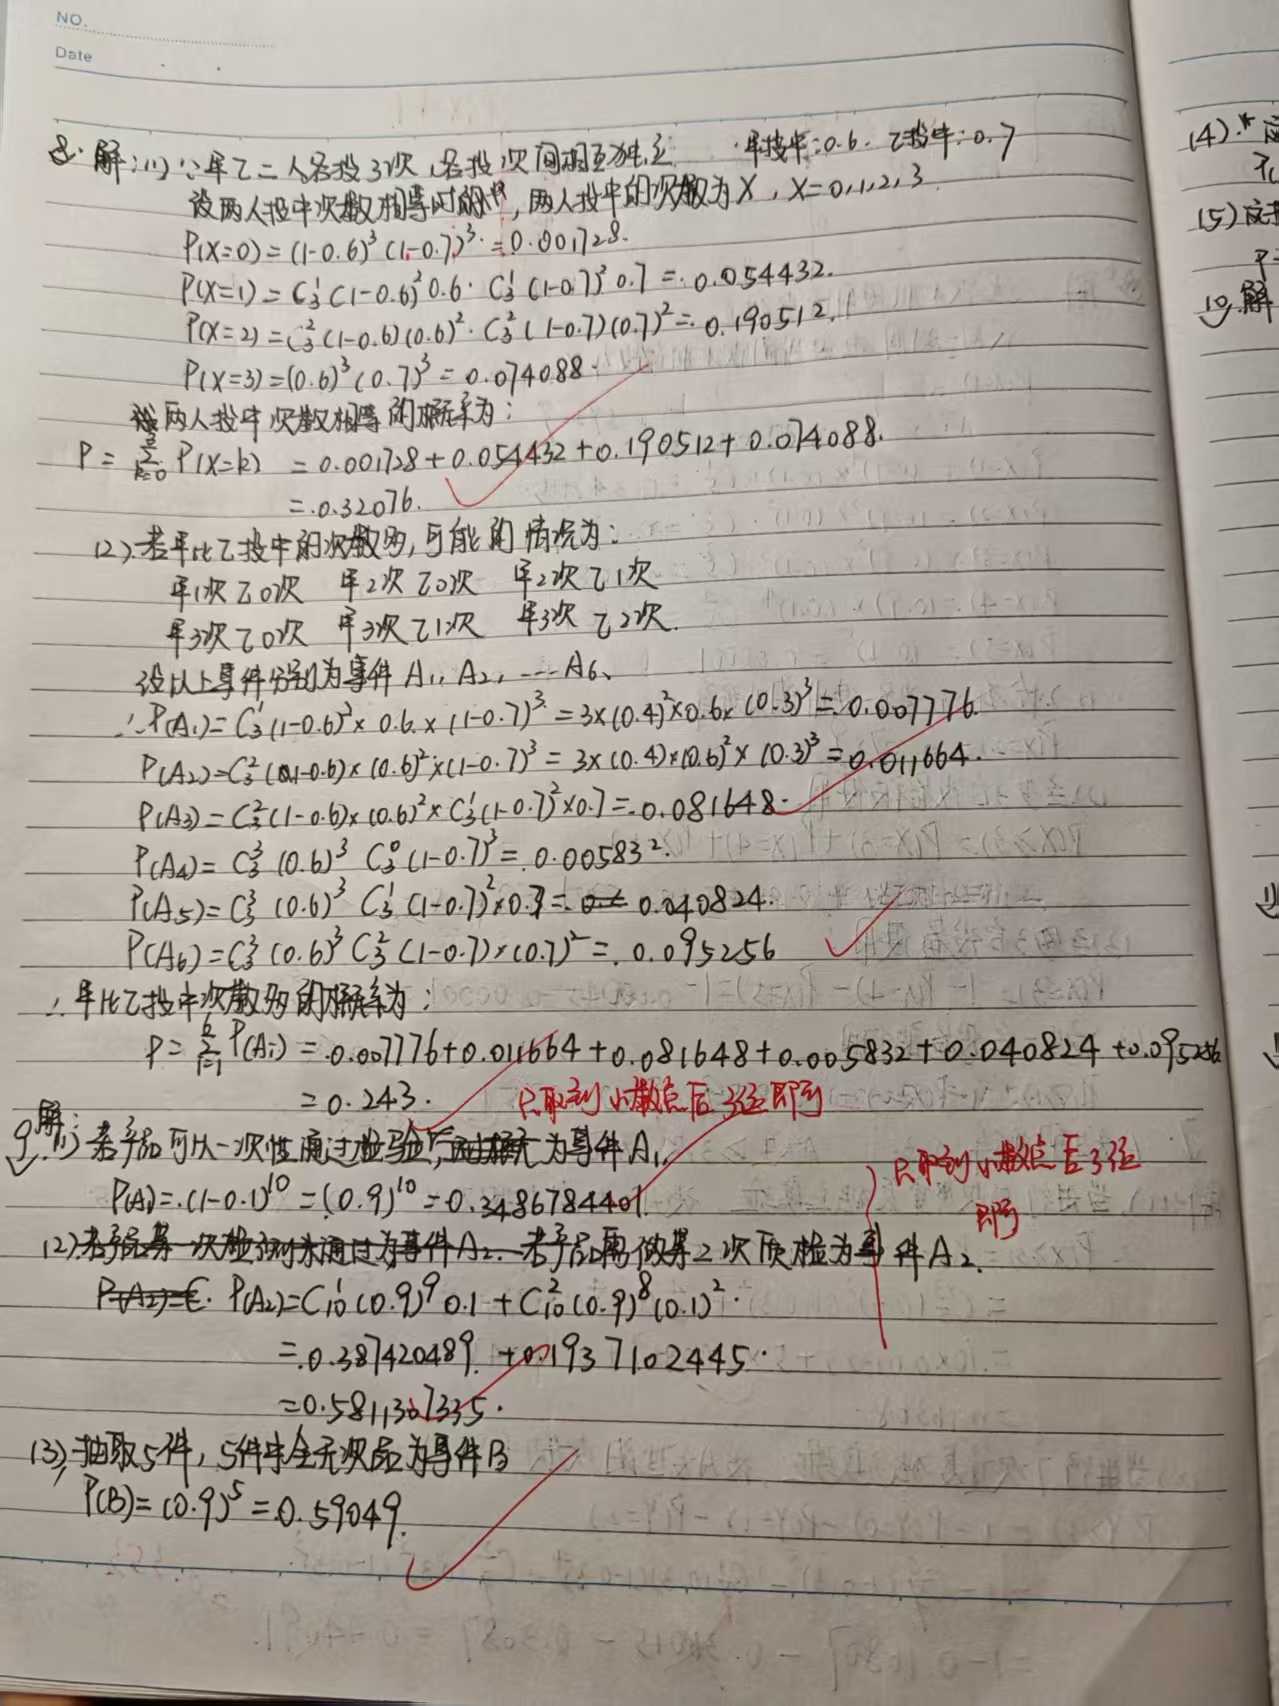 NO.
Date
8. 解:(1) ∵甲乙二人各投3次,各投次间相互独立 甲投中:0.6. 乙投中:0.7
设两人投中次数相等时, 两人投中的次数为X, X=0,1,2,3
P(X=0)=(1-0.6)³(1-0.7)³=0.001728.
P(X=1)=C₃¹(1-0.6)²0.6·C₃¹(1-0.7)²0.7=0.054432.
P(X=2)=C₃²(1-0.6)(0.6)²·C₃²(1-0.7)(0.7)²=0.190512.
P(X=3)=(0.6)³(0.7)³=0.074088.
两人投中次数相等的概率为:
P=∑P(X=k) =0.001728+0.054432+0.190512+0.074088.
=0.32076.
(2).若甲比乙投中的次数多,可能的情况为:
甲1次乙0次 甲2次乙0次 甲2次乙1次
甲3次乙0次 甲3次乙1次 甲3次乙2次.
设以上事件分别为事件A₁,A₂,…A₆.
∴P(A₁)=C₃¹(1-0.6)²×0.6×(1-0.7)³=3×(0.4)²×0.6×(0.3)³=0.007776.
P(A₂)=C₃²(1-0.6)×(0.6)²×(1-0.7)³=3×(0.4)×(0.6)²×(0.3)³=0.011664.
P(A₃)=C₃²(1-0.6)×(0.6)²×C₃¹(1-0.7)²×0.7=0.081648.
P(A₄)=C₃³(0.6)³C₃⁰(1-0.7)³=0.005832.
P(A₅)=C₃³(0.6)³C₃¹(1-0.7)²×0.7=0.040824.
P(A₆)=C₃³(0.6)³C₃²(1-0.7)×(0.7)²=0.095256
∴甲比乙投中次数多的概率为:
P=∑P(Aᵢ)=0.007776+0.011664+0.081648+0.005832+0.040824+0.095256
=0.243.
只取到小数点后3位即可
9.解(1)若产品可以一次性通过检验为事件A₁,
P(A)=(1-0.1)¹⁰=(0.9)¹⁰=0.3486784401
只取到小数点后3位
即可
(2)若产品需做第2次质检为事件A₂.
P(A₂)=C₁₀¹(0.9)⁹0.1+C₁₀²(0.9)⁸(0.1)².
=0.387420489+0.1937102445.
=0.5811307335.
(3),抽取5件, 5件中全无次品为事件B
P(B)=(0.9)⁵=0.59049.
(4).
(5)
10.解